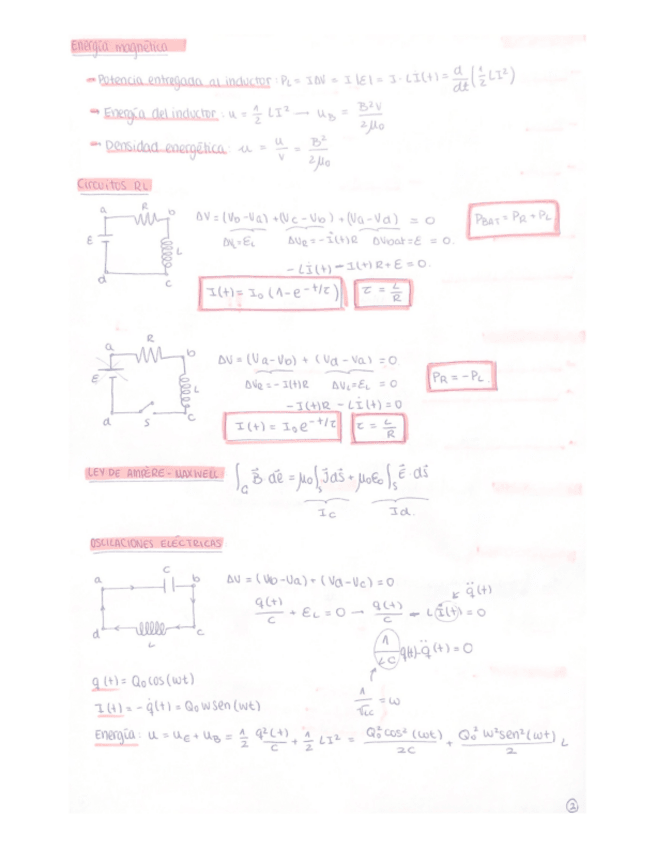 Energía magnética
- Potencia entregada al inductor: P_L = IΔV = I|ε| = I · Lİ(t) = d/dt (1/2 LI²)
- Energía del inductor: u = 1/2 LI² → u_B = B²V/2μ₀
- Densidad energética: u = u/V = B²/2μ₀
Circuitos RL
a R b
ε L
d c
ΔV = (Vb-Va) + (Vc-Vb) + (Va-Vd) = 0
ΔL=ε_L ΔV_R=-I(t)R ΔVbat=ε = 0.
-Lİ(t) - I(t)R + ε = 0.
I(t) = I₀ (1-e^-t/τ) τ = L/R
P_BAT = P_R + P_L
a R b
ε L
d S c
ΔV = (Va-Vb) + (Vd-Va) = 0
ΔV_R = -I(t)R ΔV_L=ε_L = 0
-I(t)R - Lİ(t) = 0
I(t) = I₀e^-t/τ τ = L/R
P_R = -P_L
LEY DE AMPÈRE - MAXWELL ∫_C B⃗ dℓ⃗ = μ₀∫_S J⃗ds⃗ + μ₀ε₀∫_S Ė⃗ · ds⃗
I_C I_d.
OSCILACIONES ELÉCTRICAS
a C b
d L c
ΔV = (Vb-Va) + (Vd-Vc) = 0
q̈(t)
q(t)/C + ε_L = 0 → q(t)/C - Lİ(t) = 0
1/LC q(t) - q̈(t) = 0
1/√LC = w
q(t) = Q₀cos(wt)
I(t) = -q̇(t) = Q₀wsen(wt)
Energía: u = u_E + u_B = 1/2 q²(t)/C + 1/2 LI² = Q₀²cos²(wt)/2C + Q₀²w²sen²(wt)/2 L
2